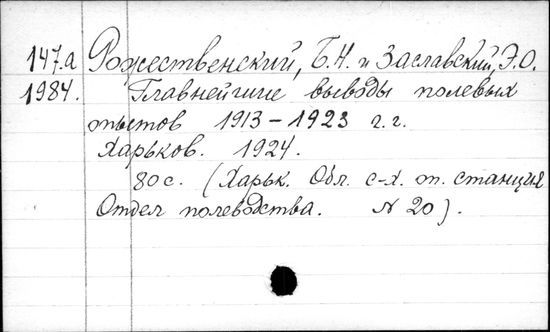 147.а Рожественский, Б.Н. и Заславский, Э.О.
1984. Главнейшие выводы полевых
опытов 1913-1923 г.г.
Харьков. 1924.
80 с. (Харьк. Обл. с-х. оп. станция
Отдел полеводства. № 20).